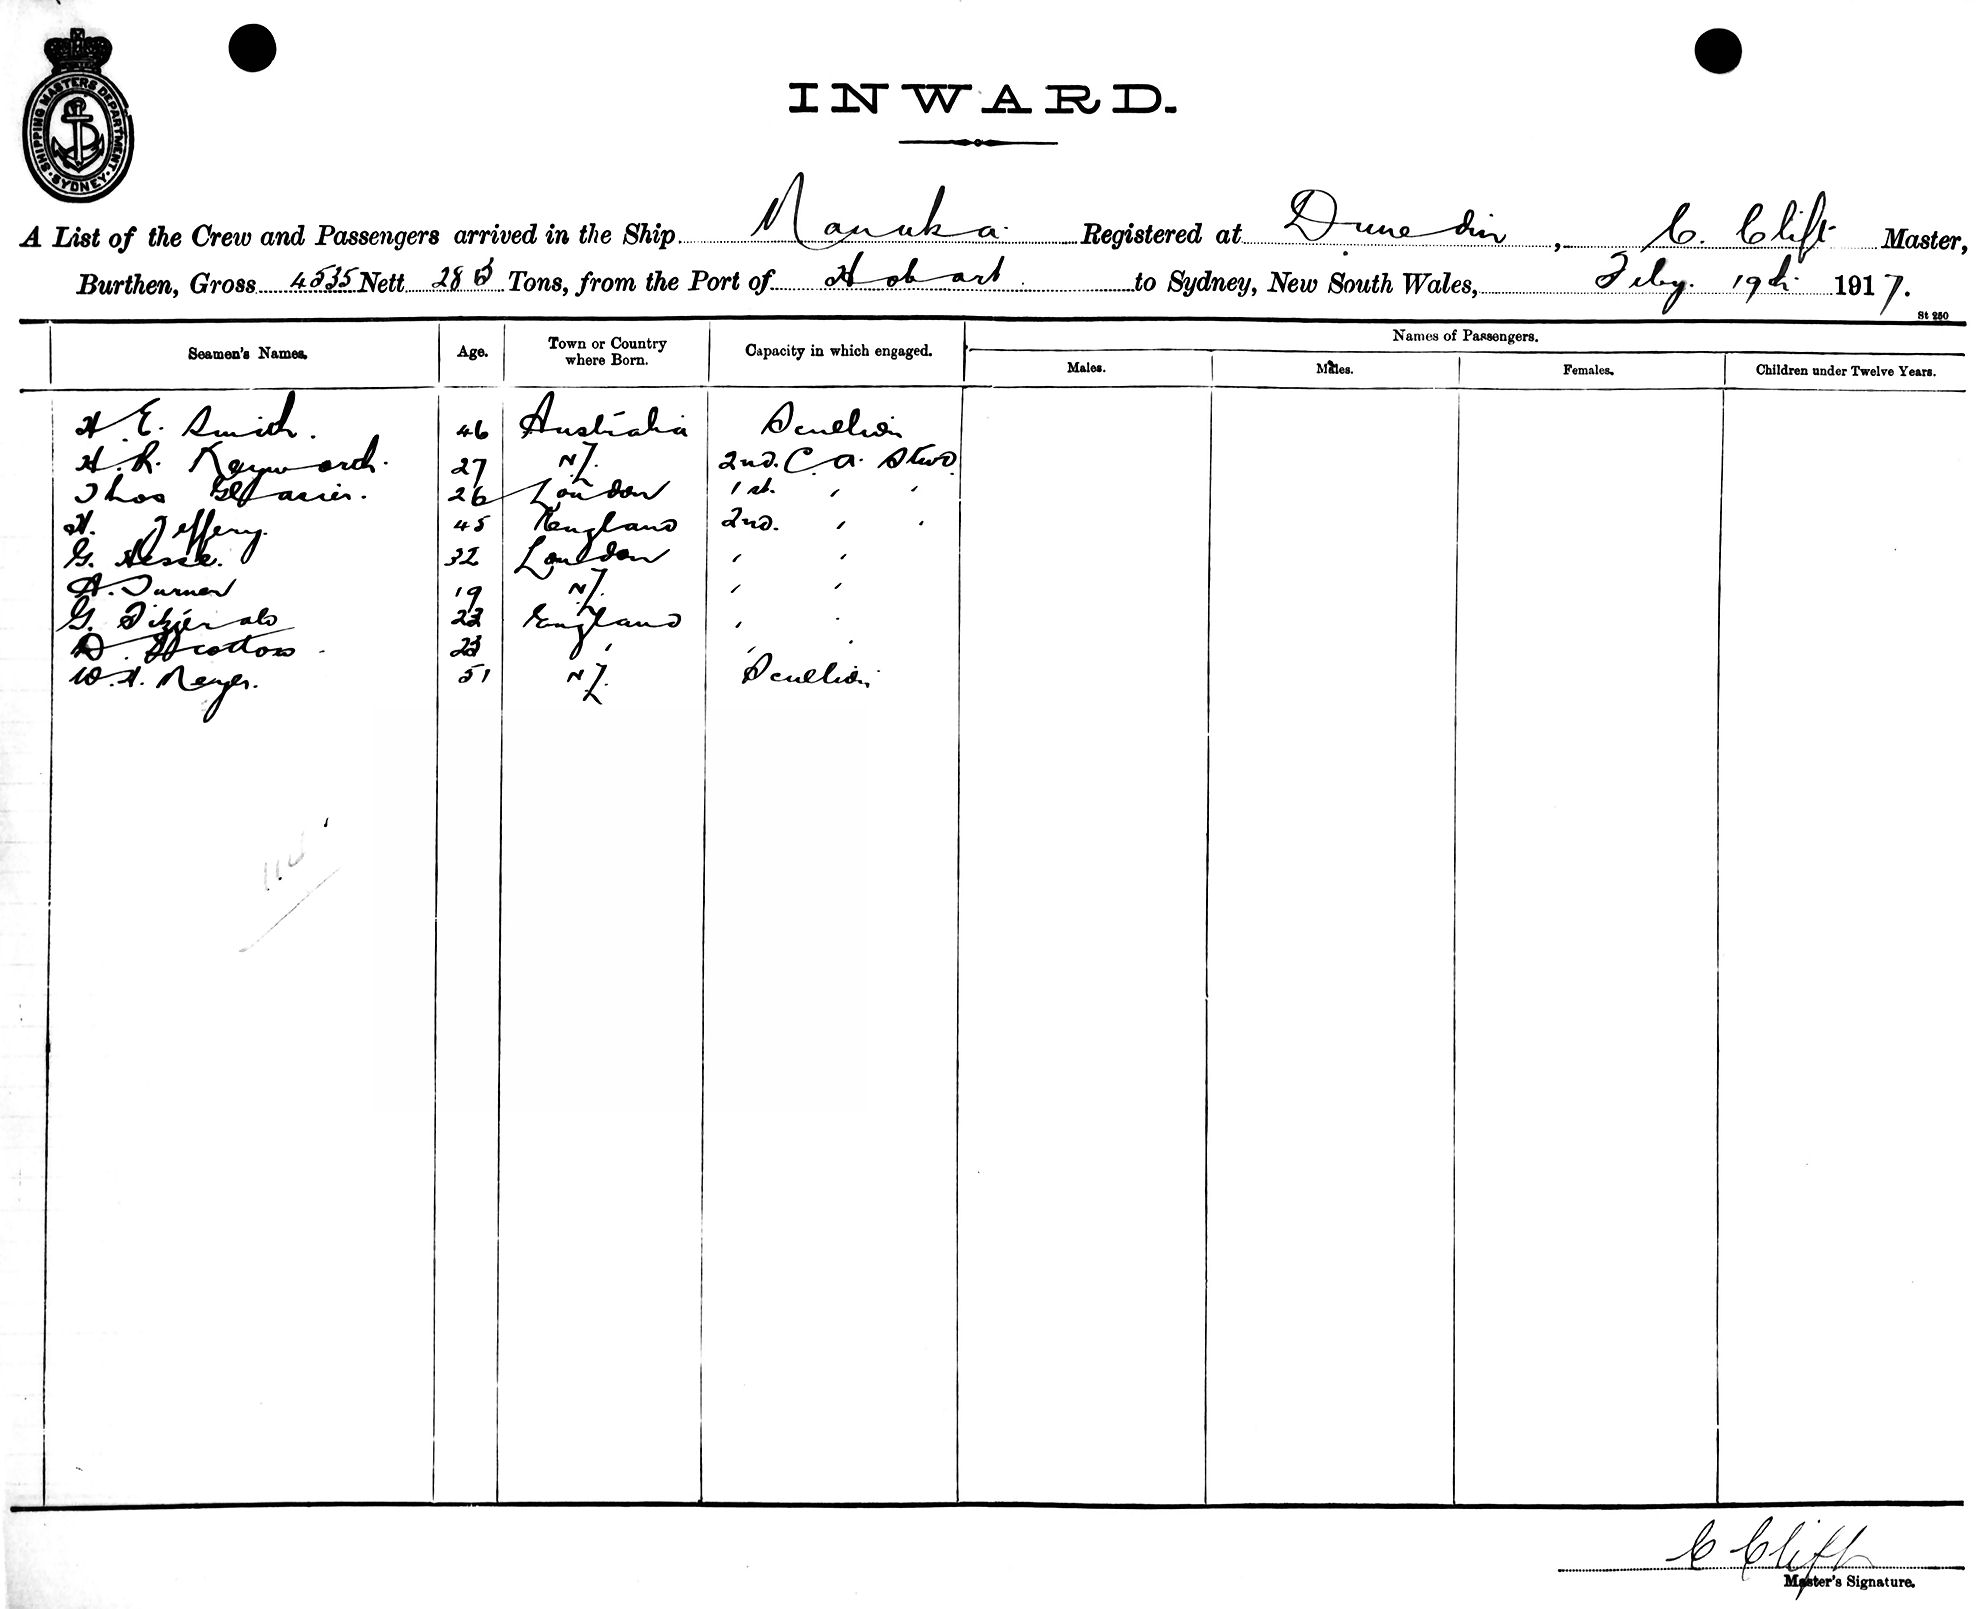 SHIPPING MASTERS DEPARTMENT · SYDNEY ·
INWARD.
A List of the Crew and Passengers arrived in the Ship Manuka Registered at Dunedin, C. Clift Master,
Burthen, Gross 4535 Nett Tons, from the Port of Hobart to Sydney, New South Wales, Feby. 19th 1917.
St 250
Seamen's Names. Age. Town or Country where Born. Capacity in which engaged. Names of Passengers.
Males. Males. Females. Children under Twelve Years.
H E. Smith. 46 Australia Scullion
H. R. Kayword. 27 N.Z. 2nd. C. a. Stwd.
Thos Glasier. 26 London 1st. " "
H. Jeffery. 45 England 2nd. " "
G. Hesse. 32 London " "
A. Turner 19 N.Z. " "
G. Fitzgerald 22 England " "
D. 23 " " "
W. H. 51 N.Z. Scullion
C Clift
Master's Signature.